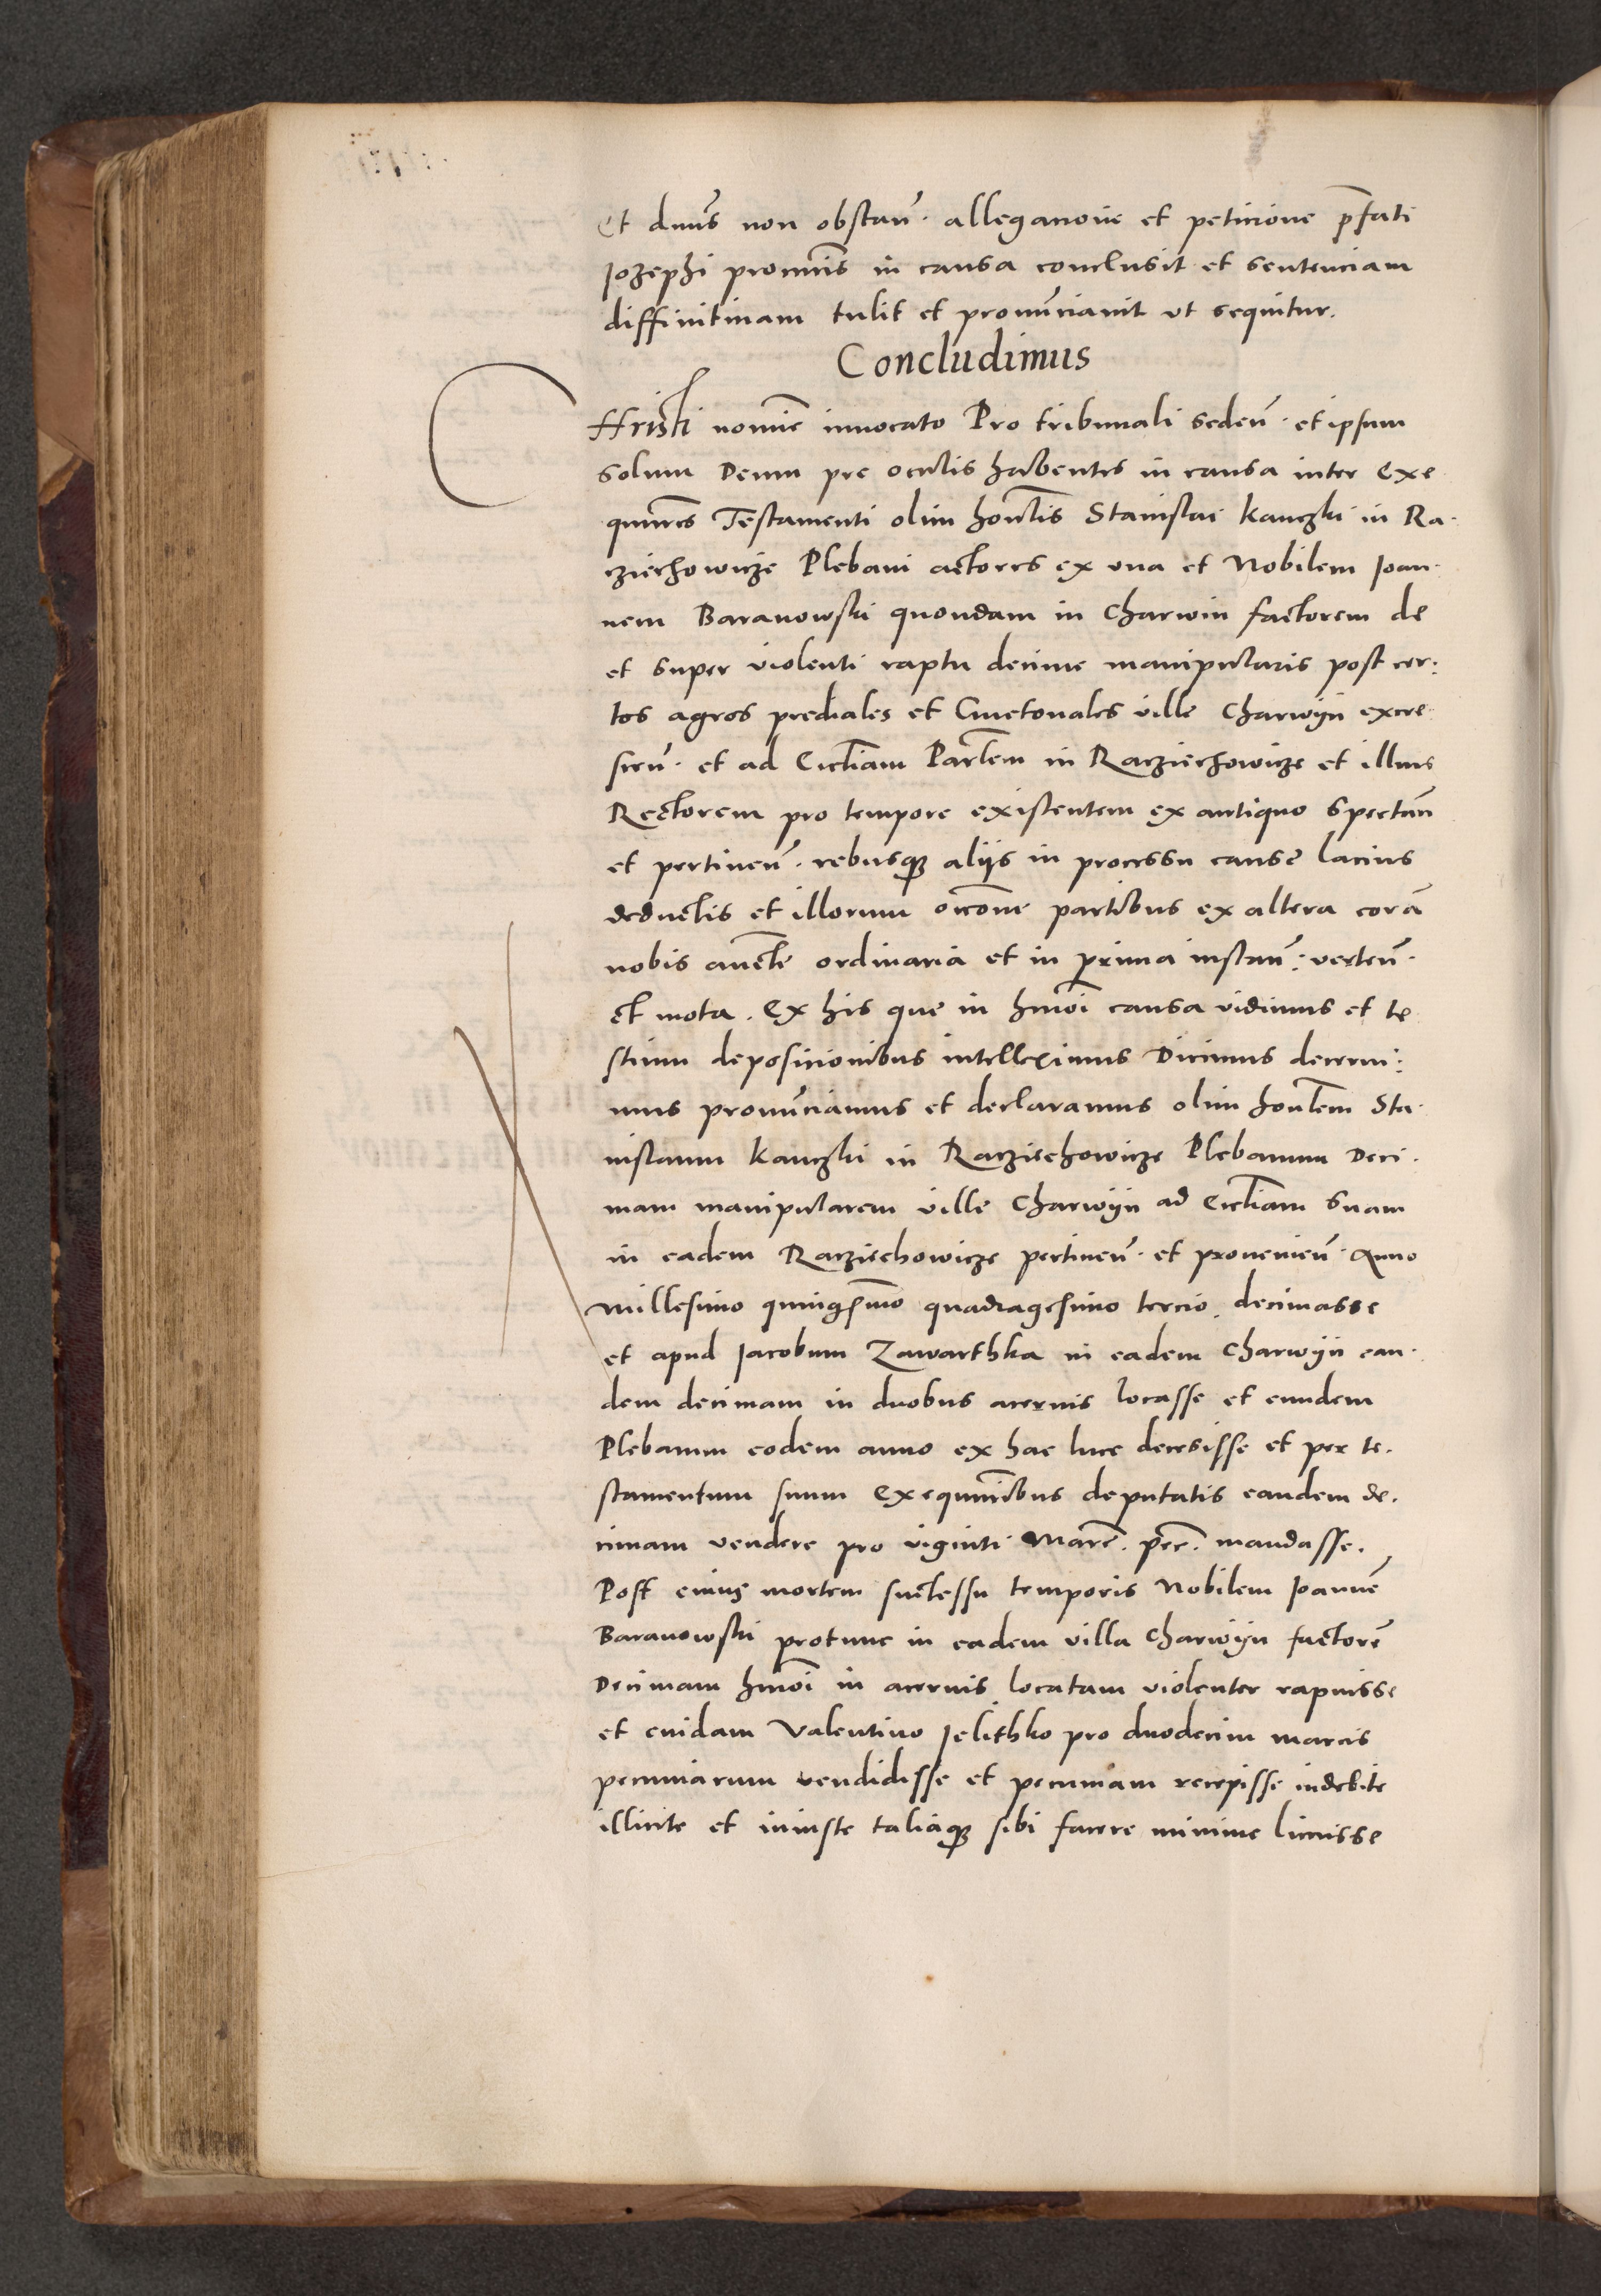 Et dnus non obstan. allegacione et peticione pfati
Jozephi procuris in causa conclusit et sentenciam
diffinitivam tulit et pronunciavit ut sequitur.
Concludimus
Christi nomine invocato Pro tribunali seden. et ipsum
solum Deum pre oculis habentes in causa inter Exe
qutores Testamenti olim honlis Stanislai Kanczki in Ra.
cziechowicze Plebani actores ex una et Nobilem Joan.
nem Baranowski quondam in Charwin factorem de
et super violenti raptu decime manipularis post cer:
tos agros prediales et Cmetonales ville Charwijn excre
scen. et ad Eccliam Parlem in Racziechowicze et illius
Rectorem pro tempore existentem ex antiquo spectan
et pertinen. rebusque aliis in processu cause lacius
deductis et illorum occone partibus ex altera cora
nobis aucte ordinaria et in prima instan: verten.
et mota. Ex his que in hmoi causa vidimus et te
stium deposicionibus intelleximus Dicimus decerni:
mus pronunciamus et declaramus olim honlem Sta.
nislaum Kanczki in Racziechowicze Plebanum Deci.
mam manipularem ville Charwijn ad Eccliam suam
in eadem Racziechowicze pertinen. et provenien. Anno
millesimo quingsmo quadragesimo tercio. decimasse
et apud Jacobum Zawarthka in eadem Charwijn ean.
dem decimam in duobus acervis locasse et eundem
Plebanum eodem anno ex hac luce decesisse et per te.
stamentum suum Exequutoribus deputatis eandem de.
cimam vendere pro viginti Marc. pec. mandasse.
Post cuius mortem successu temporis Nobilem Joanne
Baranowski protunc in eadem villa Charwijn factore
Decimam hmoi in acervis locatam violenter rapuisse
et cuidam Valentino Jelithko pro duodecim marcis
pecuniarum vendidisse et pecuniam recepisse indebite
illicite et iniuste taliaque sibi facere minime licuisse